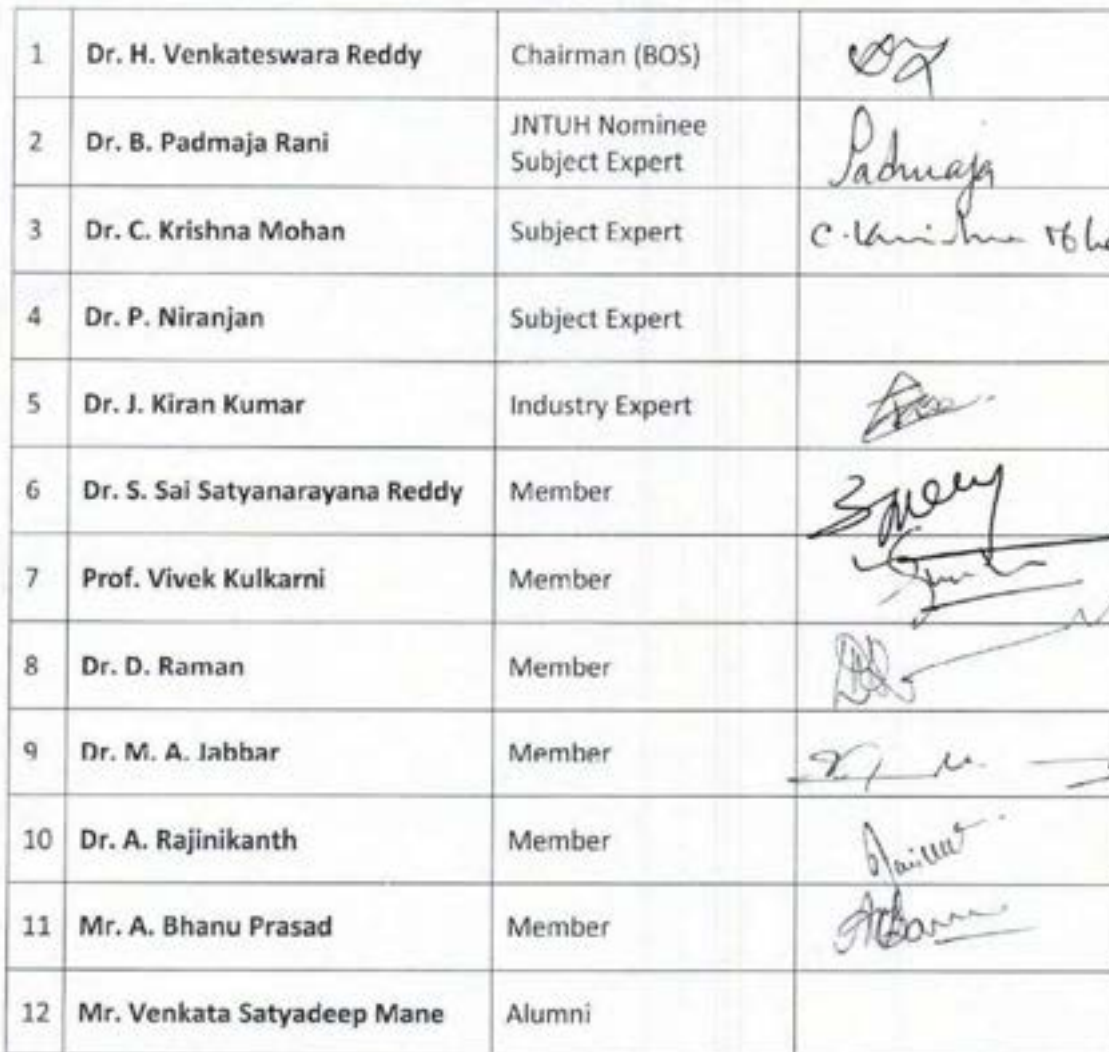 1 Dr. H. Venkateswara Reddy Chairman (BOS)
2 Dr. B. Padmaja Rani JNTUH Nominee
Subject Expert Padmaja
3 Dr. C. Krishna Mohan Subject Expert C. Krishna Moha
4 Dr. P. Niranjan Subject Expert
5 Dr. J. Kiran Kumar Industry Expert
6 Dr. S. Sai Satyanarayana Reddy Member
7 Prof. Vivek Kulkarni Member
8 Dr. D. Raman Member
9 Dr. M. A. Jabbar Member
10 Dr. A. Rajinikanth Member
11 Mr. A. Bhanu Prasad Member
12 Mr. Venkata Satyadeep Mane Alumni